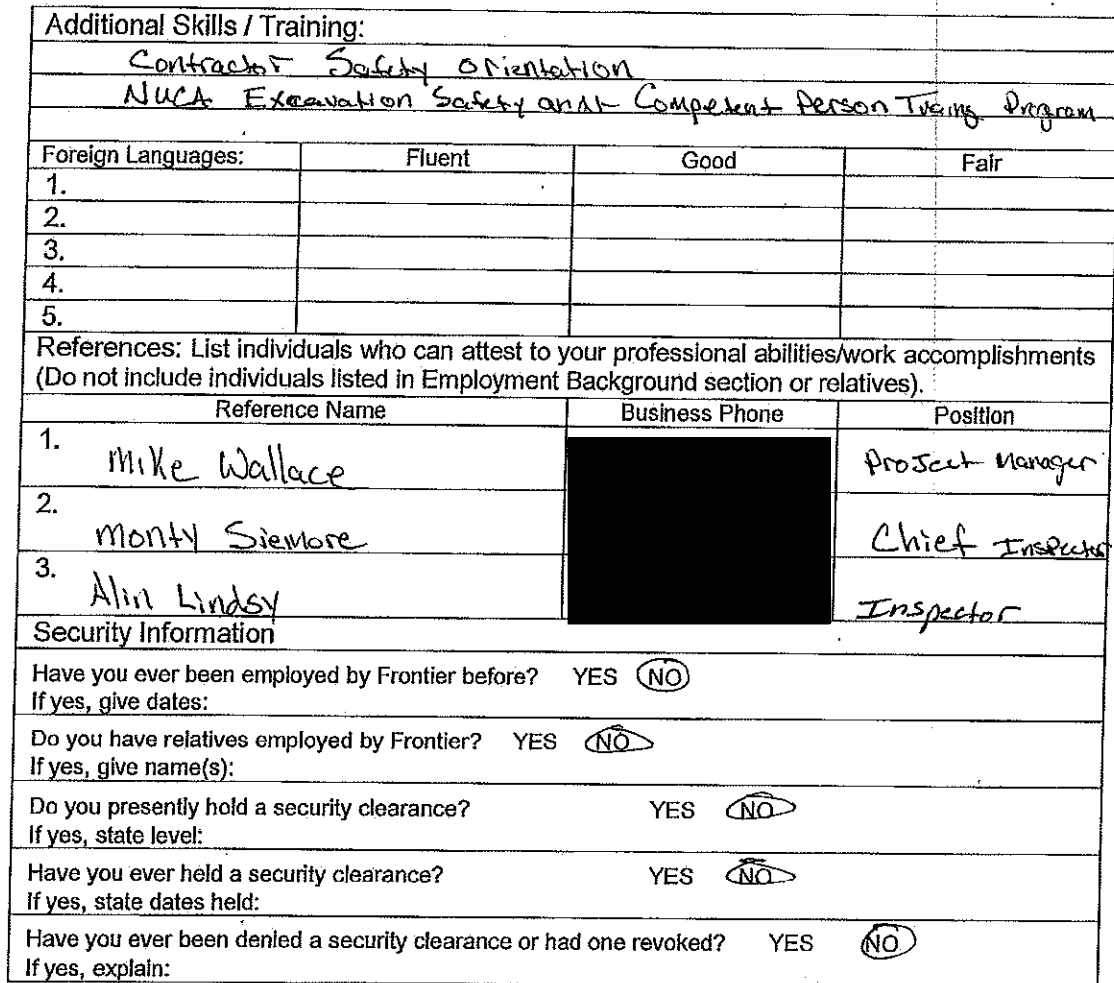 Additional Skills / Training:
Contractor Safety Orientation
NUCA Excavation Safety and Competent Person Traing Program
Foreign Languages: Fluent Good Fair
1.
2.
3.
4.
5.
References: List individuals who can attest to your professional abilities/work accomplishments
(Do not include individuals listed in Employment Background section or relatives).
Reference Name Business Phone Position
1. Mike Wallace Project Manager
2. Monty Siemore Chief Inspector
3. Alin Lindsy Inspector
Security Information
Have you ever been employed by Frontier before? YES NO
If yes, give dates:
Do you have relatives employed by Frontier? YES NO
If yes, give name(s):
Do you presently hold a security clearance? YES NO
If yes, state level:
Have you ever held a security clearance? YES NO
If yes, state dates held:
Have you ever been denied a security clearance or had one revoked? YES NO
If yes, explain: